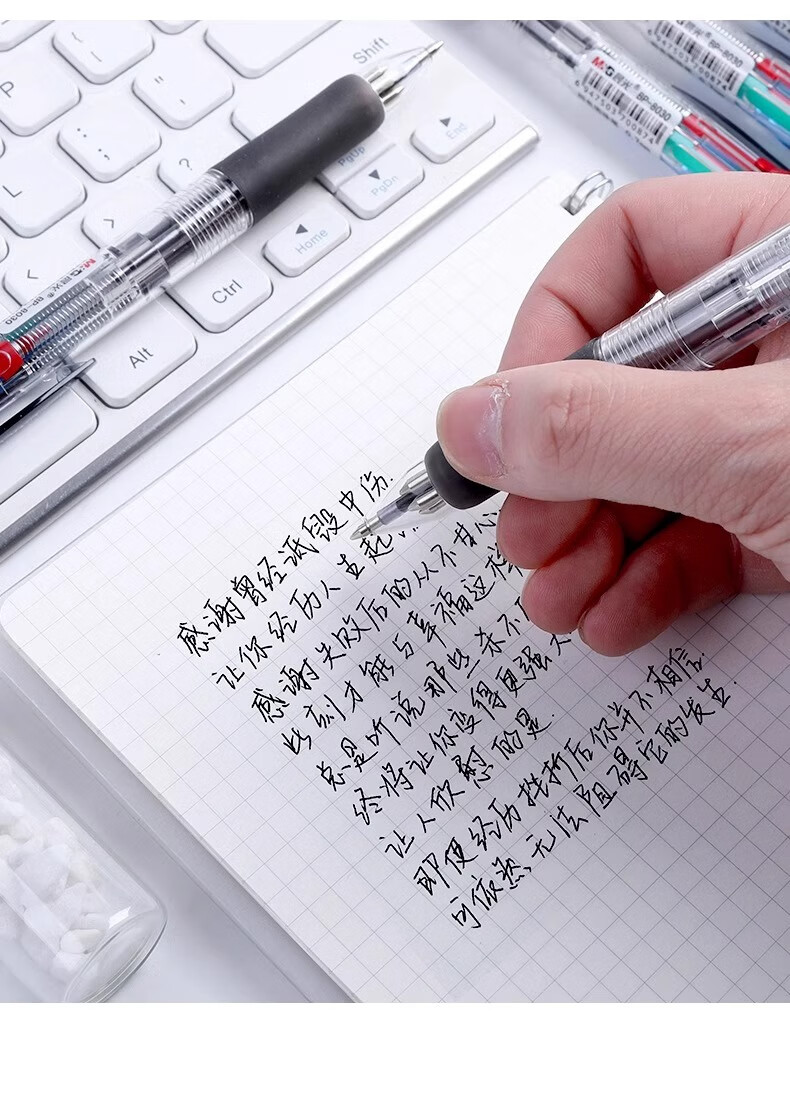 P
Shift
:
;
?
L
>
<
PgUp
PgDn
End
Home
Ctrl
Alt
M&G晨光 BP-8030
M&G晨光 BP-8030
6947503700874
BP-8030
6947503700874
感谢曾经诋毁中伤.
让你经历人生起
感谢失败后的从不甘心
此刻才能与幸福这样
总是听说那些杀不
终将让你变得更强大
让人欣慰的是.
即便经历挫折后你并不相信.
可依然无法阻碍它的发生.